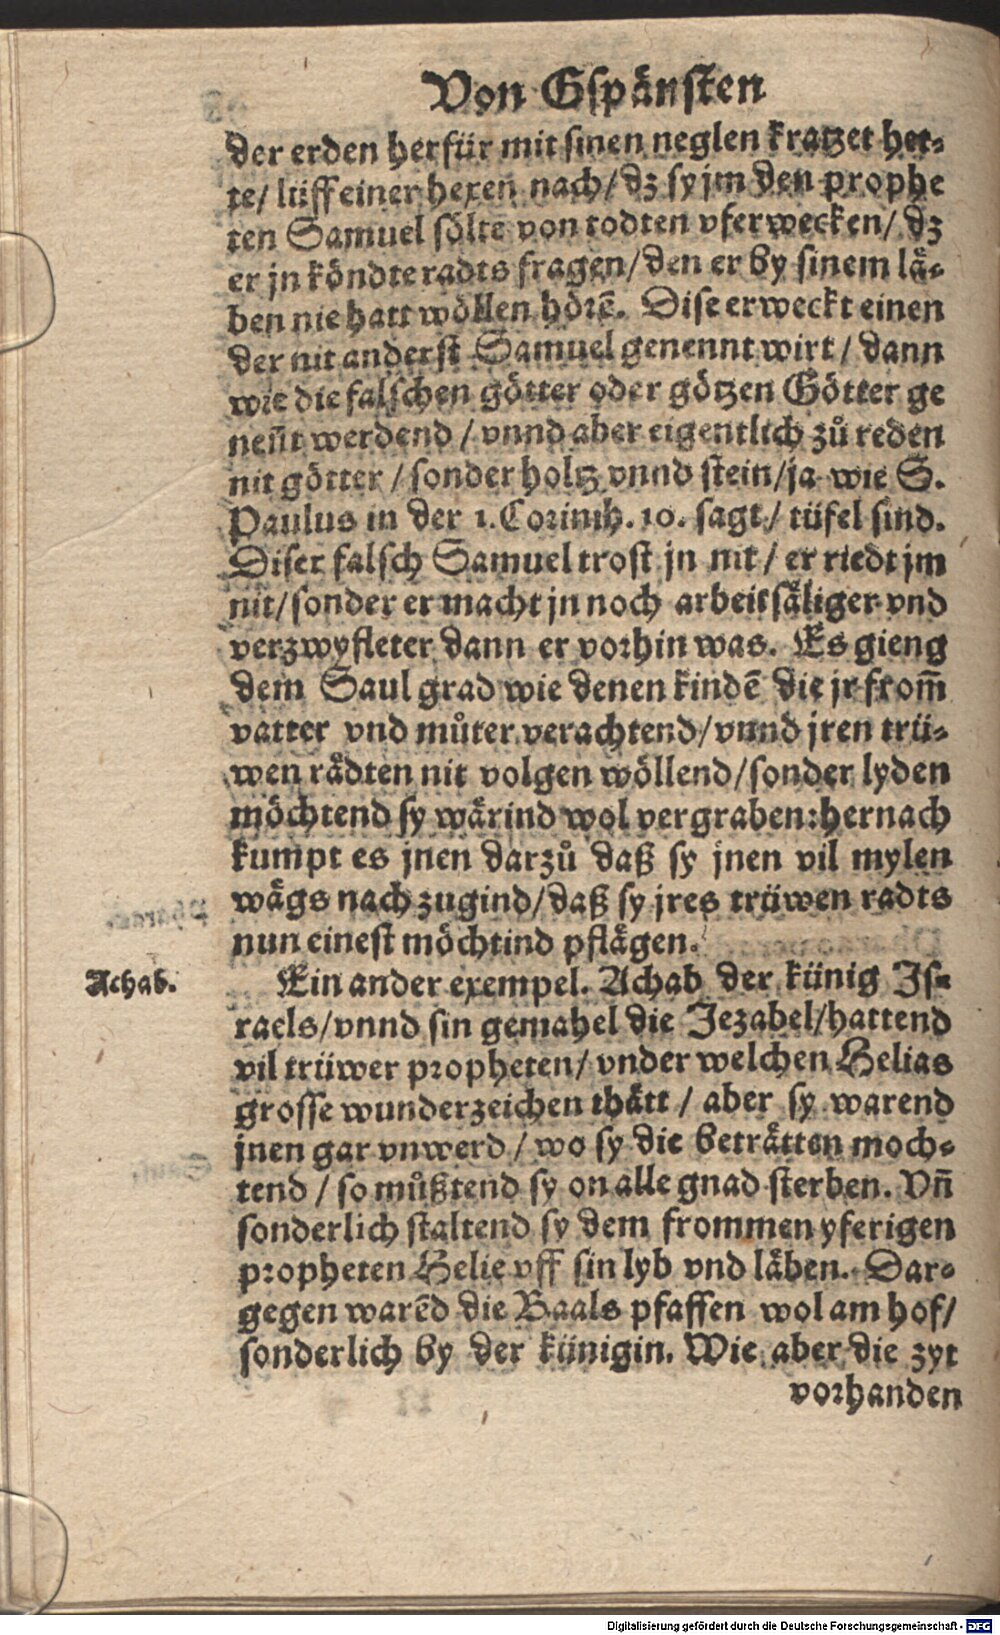 Von Gspänsten
der erden herfür mit sinen neglen kratzet het-
te/ lüff einer hexen nach/ dz sy jm den prophe
ten Samuel sölte von todten vferwecken/ dz
er jn köndte radts fragen/ den er by sinem lä-
ben nie hatt wöllen hörē. Dise erweckt einen
der nit anderst Samuel genennt wirt/ dann
wie die falschen götter oder götzen Götter ge
neñt werdend/ vnnd aber eigentlich zů reden
nit götter/ sonder holtz vnnd stein/ ja wie S.
Paulus in der 1. Corinth. 10. sagt/ tüfel sind.
Diser falsch Samuel trost jn nit/ er riedt jm
nit/ sonder er macht jn noch arbeitsäliger vnd
verzwyfleter dann er vorhin was. Es gieng
dem Saul grad wie denen kindē die jr from̃
vatter vnd můter verachtend/ vnnd jren trü-
wen rädten nit volgen wöllend/ sonder lyden
möchtend sy wärind wol vergraben: hernach
kumpt es jnen darzů daß sy jnen vil mylen
wägs nach zugind/ daß sy jres trüwen radts
nun einest möchtind pflägen.
Achab.
Ein ander exempel. Achab der künig Js-
raels/ vnnd sin gemahel die Jezabel/ hattend
vil trüwer propheten/ vnder welchen Helias
grosse wunderzeichen thätt/ aber sy warend
jnen gar vnwerd/ wo sy die beträtten moch-
tend/ so můßtend sy on alle gnad sterben. Vñ
sonderlich staltend sy dem frommen yferigen
propheten Helie vff sin lyb vnd läben. Dar-
gegen warēd die Baals pfaffen wol am hof/
sonderlich by der künigin. Wie aber die zyt
vorhanden
Digitalisierung gefördert durch die Deutsche Forschungsgemeinschaft - DFG